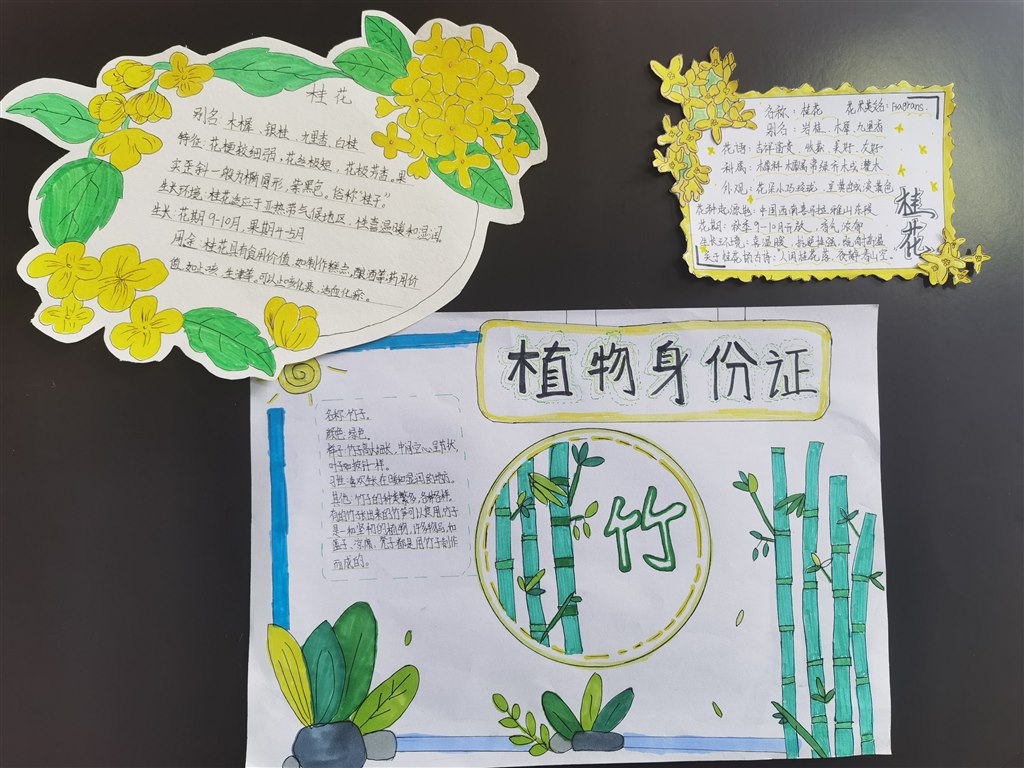 桂花
别名:木樨、银桂、九里香、白桂
特征:花梗较细弱,花丝极短,花极芳香,果
实歪斜一般为椭圆形,紫黑色。俗称“桂子”
生长环境:桂花适应于亚热带气候地区,性喜温暖和湿润
生长:花期9-10月,果期4-5月
用途:桂花具有食用价值,如制作糕点,酿酒等药用价
值,如止咳、生津等。可以止咳化痰、活血化瘀。
名称:桂花 花束英名:Fragrans.
别名:岩桂、木犀、九里香
花语:吉祥富贵、收获、美好、友好
科属:木犀科 木犀属常绿乔木或灌木
外观:花朵小巧玲珑、呈黄色或淡黄色
中国西南喜马拉雅山东段
花期:秋季9-10月开放、香气浓郁
生长环境:喜温暖、抗逆性强,既耐高温
关于桂花的古诗:人闲桂花落,夜静春山空。
桂花
植物身份证
名称:竹子。
颜色:绿色。
样子:竹子高大、细长,中间空心,呈节状,
叶子如披针一样。
习性:喜欢生长在温暖和湿润的地方。
其他:竹子的种类繁多,各种各样。
有的竹子长出来的竹笋可以食用,竹子
是一种坚韧的植物,许多物品,如
篮子、凉席、凳子都是用竹子制作
而成的。
竹